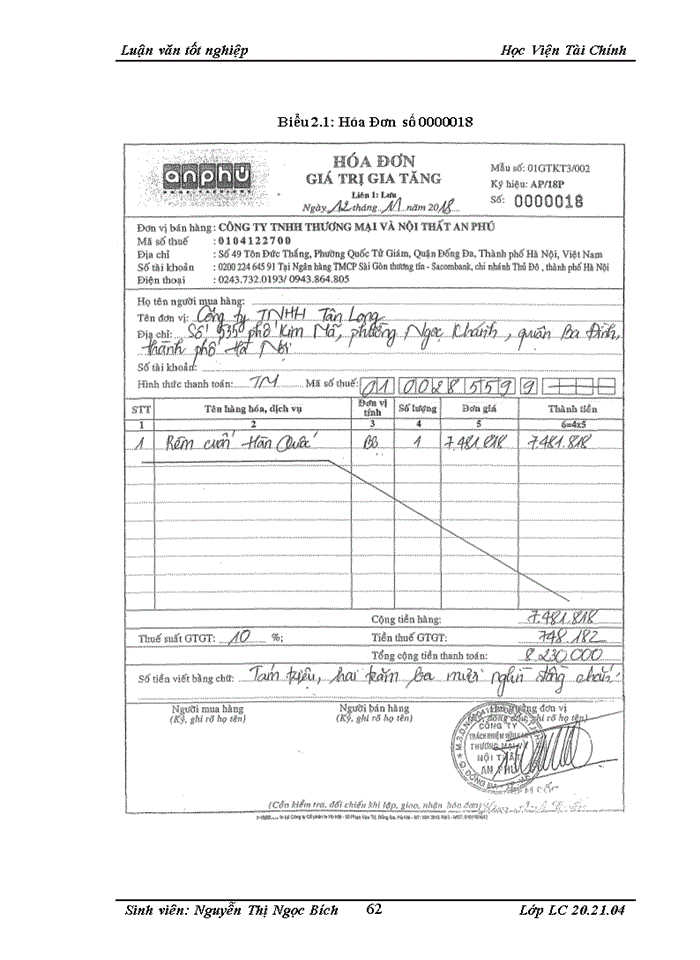 Luận văn tốt nghiệp Học Viện Tài Chính
Biểu 2.1: Hóa Đơn số 0000018
anphú
HÓA ĐƠN
GIÁ TRỊ GIA TĂNG
Liên 1: Lưu
Ngày 12 tháng 11 năm 2018
Mẫu số: 01GTKT3/002
Ký hiệu: AP/18P
Số: 0000018
Đơn vị bán hàng: CÔNG TY TNHH THƯƠNG MẠI VÀ NỘI THẤT AN PHÚ
Mã số thuế : 0104122700
Địa chỉ : Số 49 Tôn Đức Thắng, Phường Quốc Tử Giám, Quận Đống Đa, Thành phố Hà Nội, Việt Nam
Số tài khoản : 0200 224 645 91 Tại Ngân hàng TMCP Sài Gòn thương tín - Sacombank, chi nhánh Thủ Đô, thành phố Hà Nội
Điện thoại : 0243.732.0193/ 0943.864.805
Họ tên người mua hàng:
Tên đơn vị: Công ty TNHH Tân Long
Địa chỉ: Số 535 phố Kim Mã, phường Ngọc Khánh, quận Ba Đình,
thành phố Hà Nội
Số tài khoản:
Hình thức thanh toán: TM Mã số thuế: 01 0088559 9
STT Tên hàng hóa, dịch vụ Đơn vị tính Số lượng Đơn giá Thành tiền
1 2 3 4 5 6=4x5
1 Rèm cuốn Hàn Quốc Bộ 1 7.481.818 7.481.818
Cộng tiền hàng: 7.481.818
Thuế suất GTGT: 10 %; Tiền thuế GTGT: 748.182
Tổng cộng tiền thanh toán: 8.230.000
Số tiền viết bằng chữ: Tám triệu, hai trăm ba mươi nghìn đồng chẵn.
Người mua hàng Người bán hàng Thủ trưởng đơn vị
(Ký, ghi rõ họ tên) (Ký, ghi rõ họ tên) (Ký, đóng dấu, ghi rõ họ tên)
CÔNG TY
TRÁCH NHIỆM HỮU HẠN
THƯƠNG MẠI VÀ
NỘI THẤT
AN PHÚ
(Cần kiểm tra, đối chiếu khi lập, giao, nhận hóa đơn)
Sinh viên: Nguyễn Thị Ngọc Bích 62 Lớp LC 20.21.04